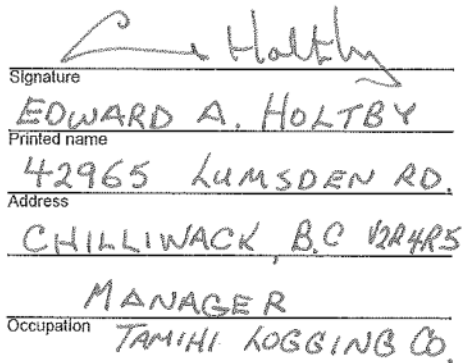 E Holtby
Signature
EDWARD A. HOLTBY
Printed name
42965 LUMSDEN RD.
Address
CHILLIWACK, B.C V2R4R5
MANAGER
Occupation TAMIHI LOGGING CO.